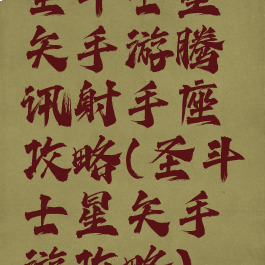 圣斗士星
矢手游腾
讯射手座
攻略(圣斗
士星矢手
游攻略)